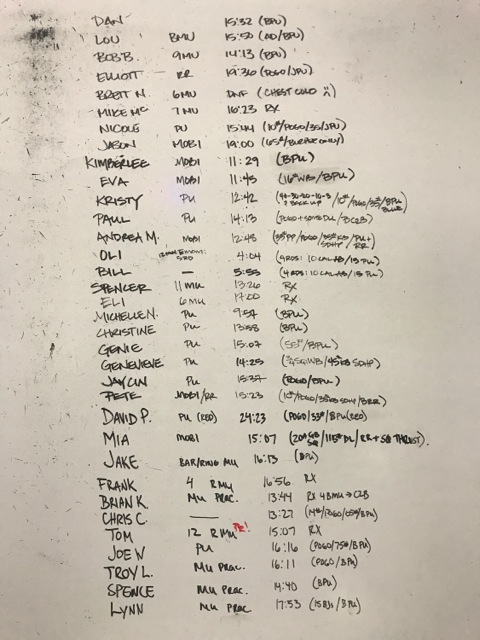 DAN 15:32 (BPU)
LOU BMU 15:50 (AD/BPU)
BOB B. 9MU 14:13 (BPU)
ELLIOTT RR 19:36 (POGO/JPU)
BRETT N. 6MU DNF (CHEST COLD
MIKE MC 7MU 16:23 RX
NICOLE PU 15:44 (10#/POGO/35/JPU)
JASON MOBI 19:00 (65#/BURPEE ONLY)
KIMBERLEE MOBI 11:29 (BPU)
EVA MOBI 11:45 (16#WB/BPU)
KRISTY PU 12:42
PAUL PU 14:13
ANDREA M. MOBI 12:48
OLI 4:04 (4RDS: 10 CAL AB/15 PU)
BILL — 5:55 (4 RDS: 10 CAL AB/15 PU)
SPENCER 11MU 13:26 RX
ELI 6MU 17:00 RX
MICHELLE N. PU 9:54 (BPU)
CHRISTINE PU 13:58 (BPU)
GENIE PU 15:07 (55#/BPU)
GENEVIEVE PU 14:25
JAYLIN PU 15:37 (POGO/BPU)
PETE MOBI/RR 15:23
DAVID P. PU (RED) 24:23 (POGO/33#/BPU(RED)
MIA MOBI 15:07 (20# /115# DL/RR+SQ THRUST).
JAKE BAR/RING MU 16:13 (BPU)
FRANK 4 RMU 16:56 RX
BRIAN K. MU PRAC. 13:44 RX 4BMU→C2B
CHRIS C. — 13:27 (14#/POGO/65#/BPU)
TOM 12 RMU PR! 15:07 RX
JOE N PU 16:16 (POGO/75#/BPU)
TROY L. MU PRAC. 16:11 (POGO/BPU)
SPENCE MU PRAC. 14:40 (BPU)
LYNN MU PRAC. 17:53 (15BJs/BPU)